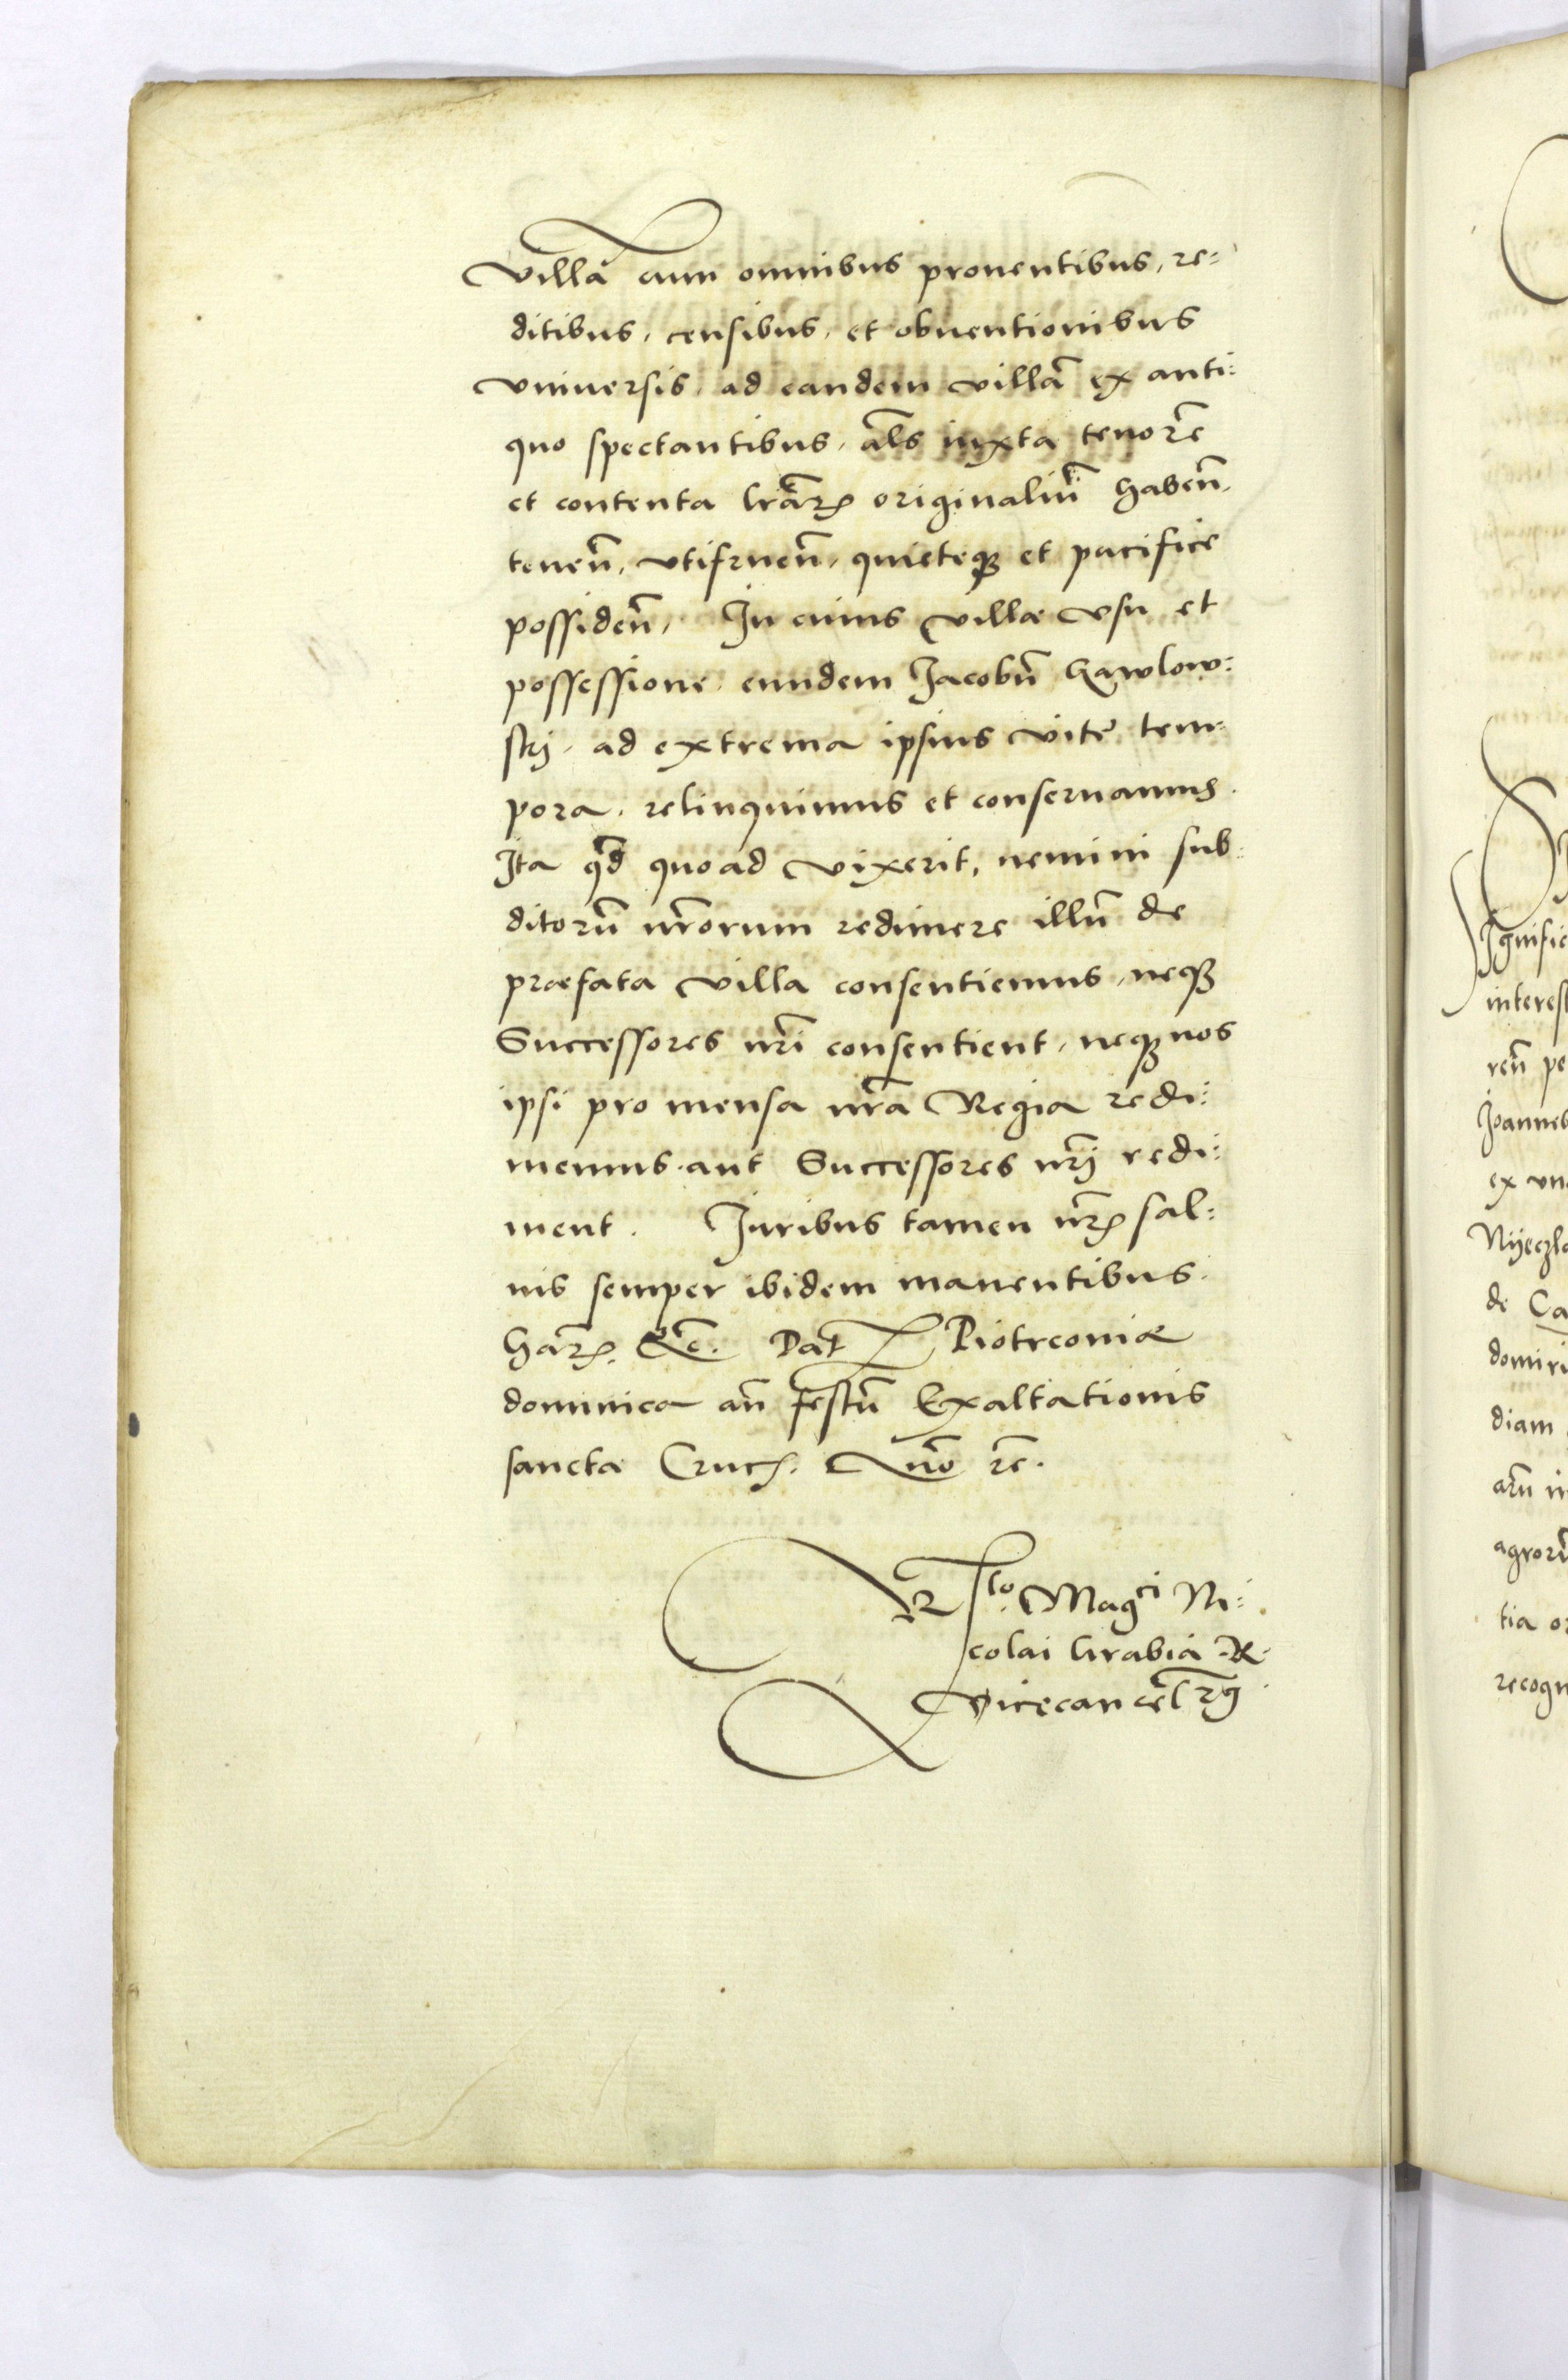 Villā cum omnibus prouentibus, re⸗
ditibus, censibus, et obuentionibus
vniuersis, ad eandem villā ex anti⸗
quo spectantibus, als̄ iuxta tenorē
et contenta lrāꝝ originaliū haben̄,
tenen̄, vtifruen̄, quieteqꝫ et pacifice
possiden̄, In cuius villæ vsu et
possessione, eundem Jacobū Gawlow⸗
skj, ad extrema ipsius vitę tem⸗
pora, relinquimus et conseruamus.
Ita qd̄ quoad vixerit, nemini sub⸗
ditorū nr̄orum redimere illū de
præfata villa consentiemus, neqꝫ
Successores nr̄i consentient, neqꝫ nos
ipsi pro mensa nr̄a Regia redi⸗
memus, aut Successores nr̄j redi⸗
ment. Juribus tamen nr̄ꝝ sal⸗
uis semper ibidem manentibus.
hāꝝ. &c̄. Dat Piotrcouiæ
dominica an̄ festū Exaltationis
sanctæ Cruc. Qn̄o re.
R sto. Magci Ni⸗
colai Grabia R.
Vicecancel rg
Ignific
interest
ren̄ pe
Joannes
ex vn
Nyeczla
de Ca
domiri
diam
arū in
agrorū
tia or
recogn